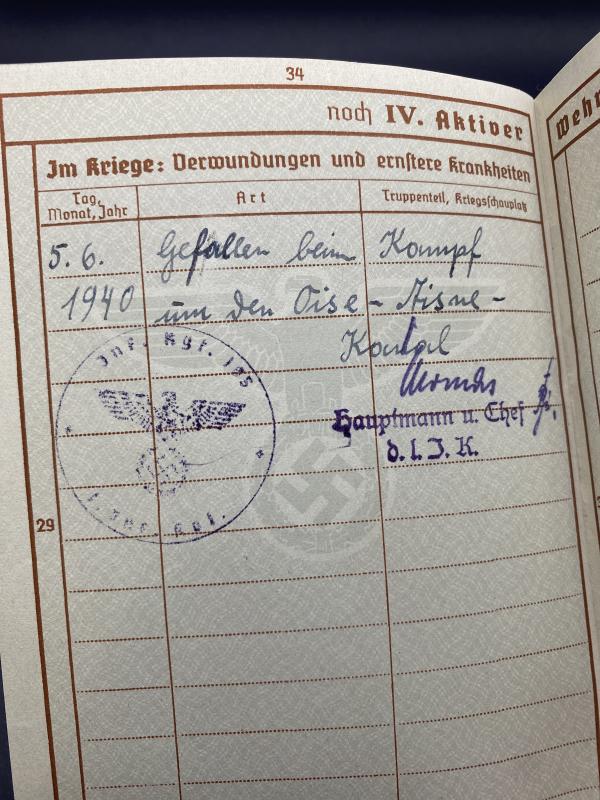 34
noch IV. Aktiver
Wehr
Im Kriege: Verwundungen und ernstere Krankheiten
Tag, Monat, Jahr
Art
Truppenteil, Kriegsschauplatz
5. 6. Gefallen beim Kampf
1940 um den Oise - Aisne -
Kanal
Inf. Rgt.
Hauptmann u. Chef
d. 1. J. K.
29